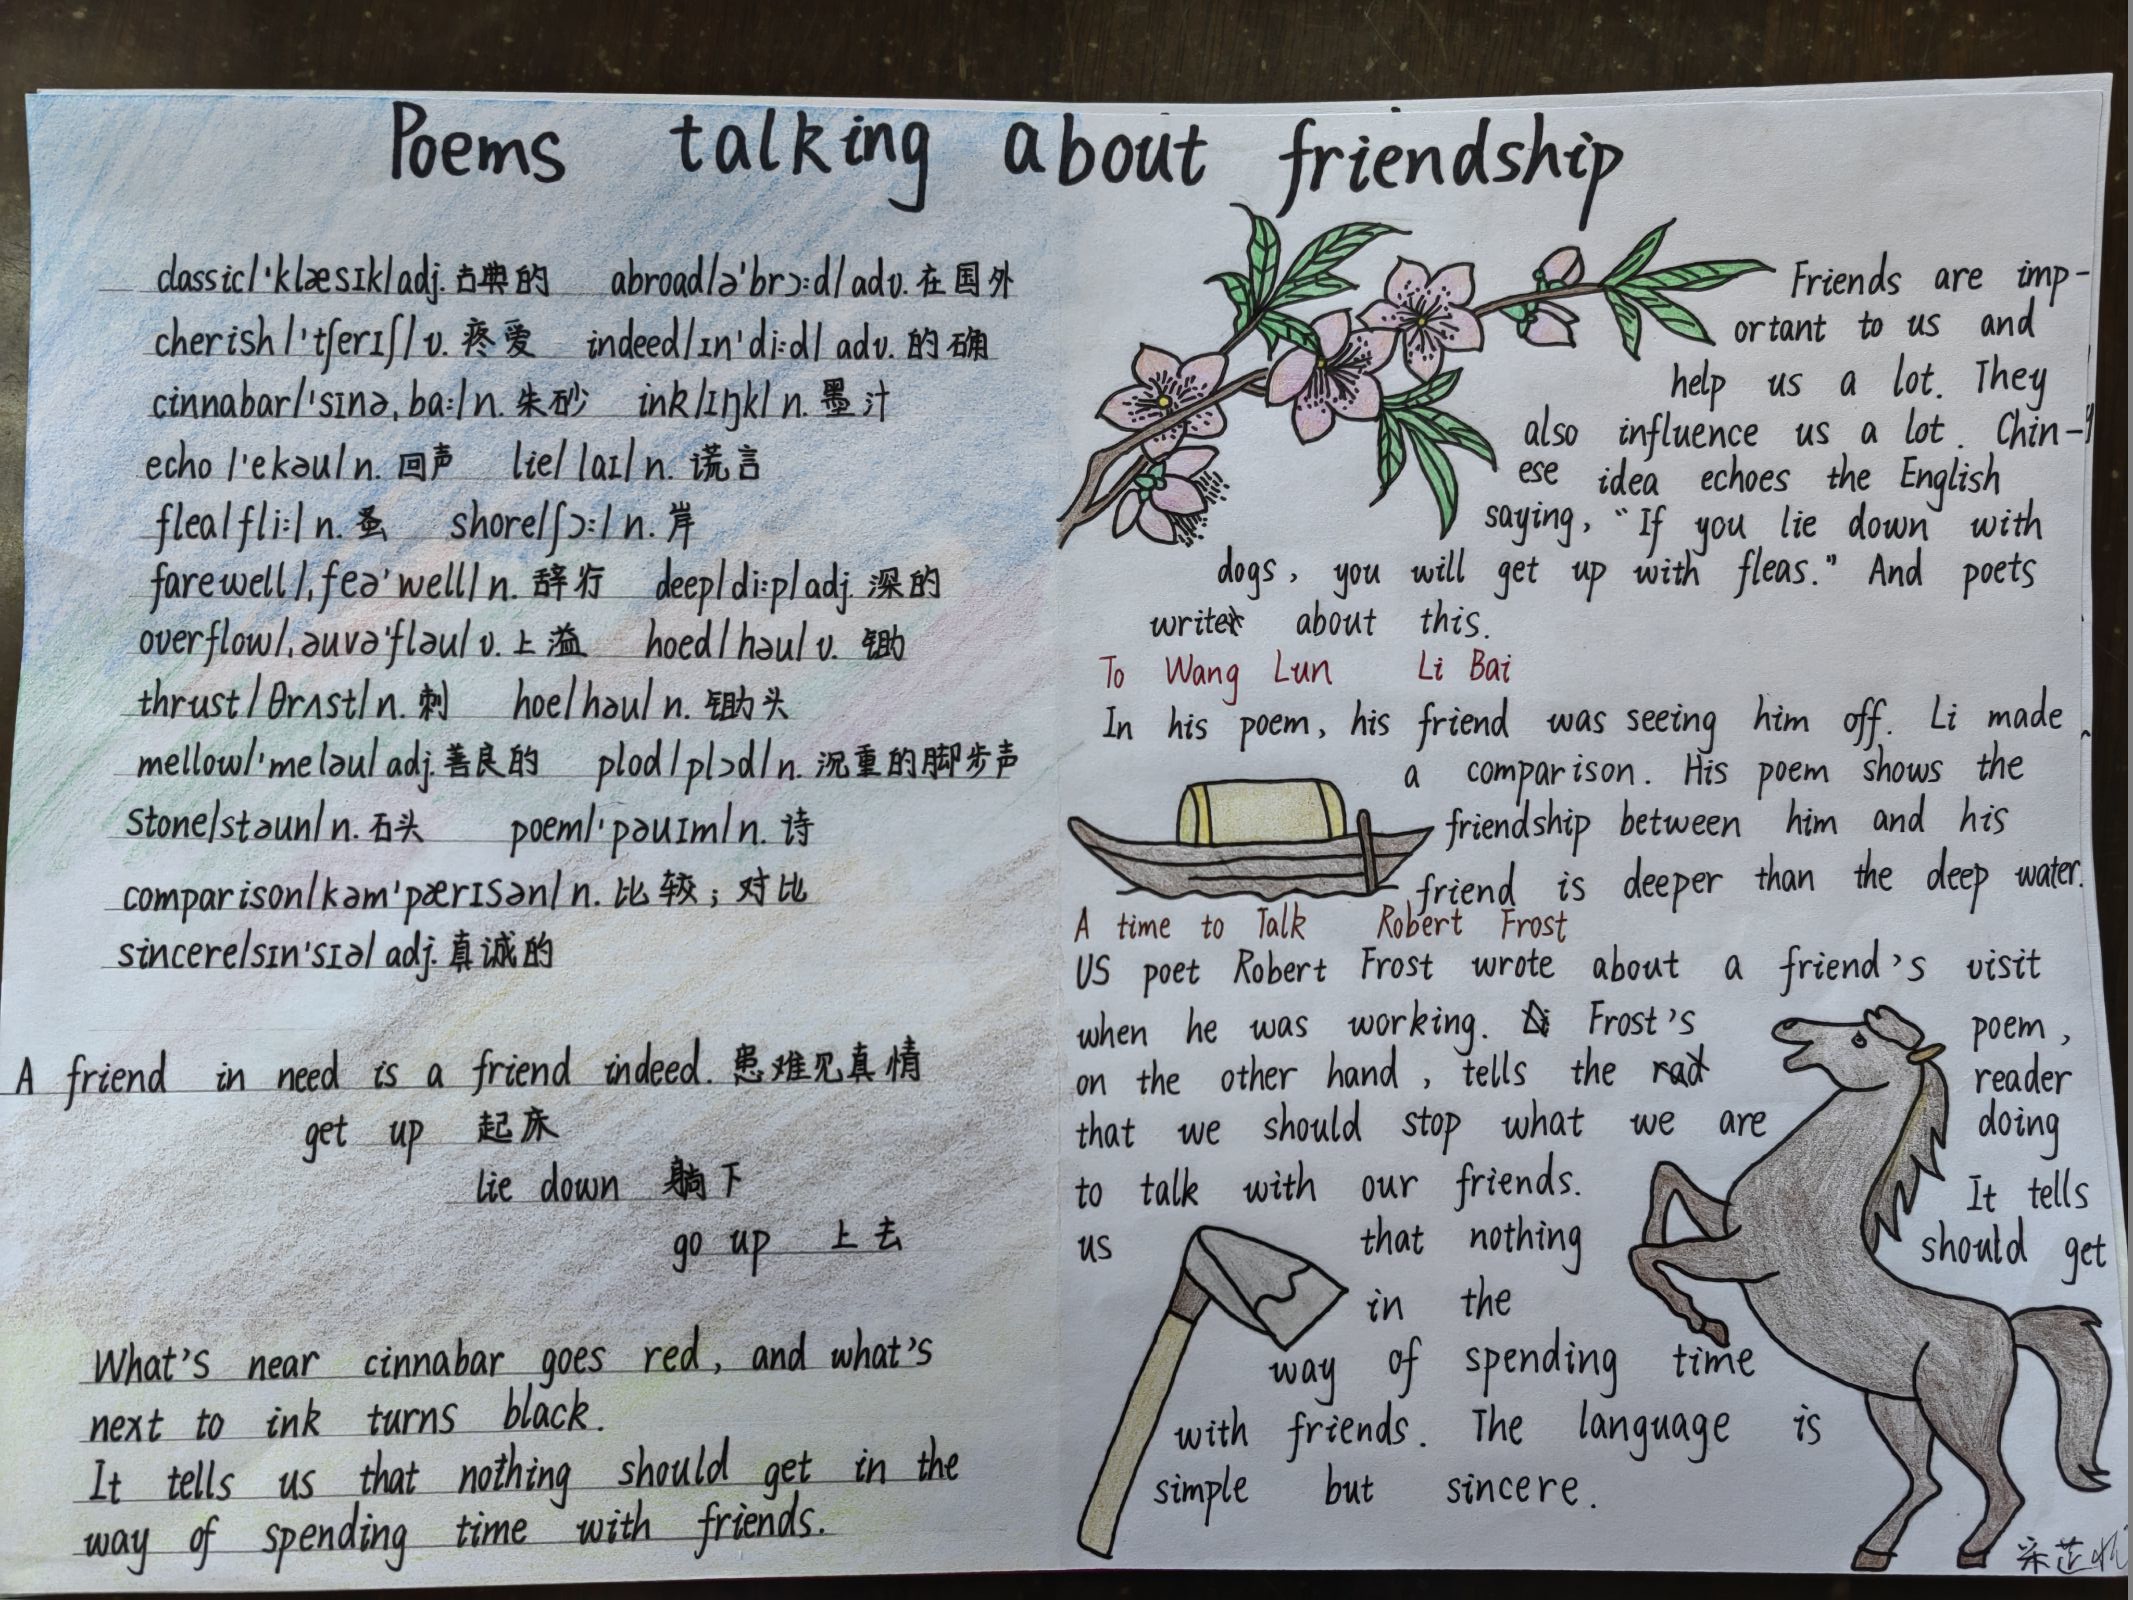 Poems talking about friendship
classic/'klæsɪk/adj.古典的 abroad/ə'brɔ:d/adv.在国外
cherish/'tʃerɪʃ/v.疼爱 indeed/ɪn'di:d/adv.的确
cinnabar/'sɪnə,ba:/n.朱砂 ink/ɪŋk/n.墨汁
echo/'ekəu/n.回声 lie/laɪ/n.谎言
flea/fli:/n.蚤 shore/ʃɔ:/n.岸
farewell/,feə'well/n.辞行 deep/di:p/adj.深的
overflow/,əuvə'fləu/v.上溢 hoed/həu/v.锄
thrust/θrʌst/n.刺 hoe/həu/n.锄头
mellow/'meləu/adj.善良的 plod/plɔd/n.沉重的脚步声
Stone/stəun/n.石头 poem/'pəuɪm/n.诗
comparison/kəm'pærɪsən/n.比较；对比
sincere/sɪn'sɪə/adj.真诚的
A friend in need is a friend indeed.患难见真情
get up 起床
lie down 躺下
go up 上去
What's near cinnabar goes red, and what's
next to ink turns black.
It tells us that nothing should get in the
way of spending time with friends.
Friends are imp-
ortant to us and
help us a lot. They
also influence us a lot. Chin-
ese idea echoes the English
saying, "If you lie down with
dogs, you will get up with fleas." And poets
write about this.
To Wang Lun Li Bai
In his poem, his friend was seeing him off. Li made
a comparison. His poem shows the
friendship between him and his
friend is deeper than the deep water.
A time to Talk Robert Frost
US poet Robert Frost wrote about a friend's visit
when he was working. Frost's poem,
on the other hand, tells the reader
that we should stop what we are doing
to talk with our friends. It tells
us that nothing should get
in the
way of spending time
with friends. The language is
simple but sincere.